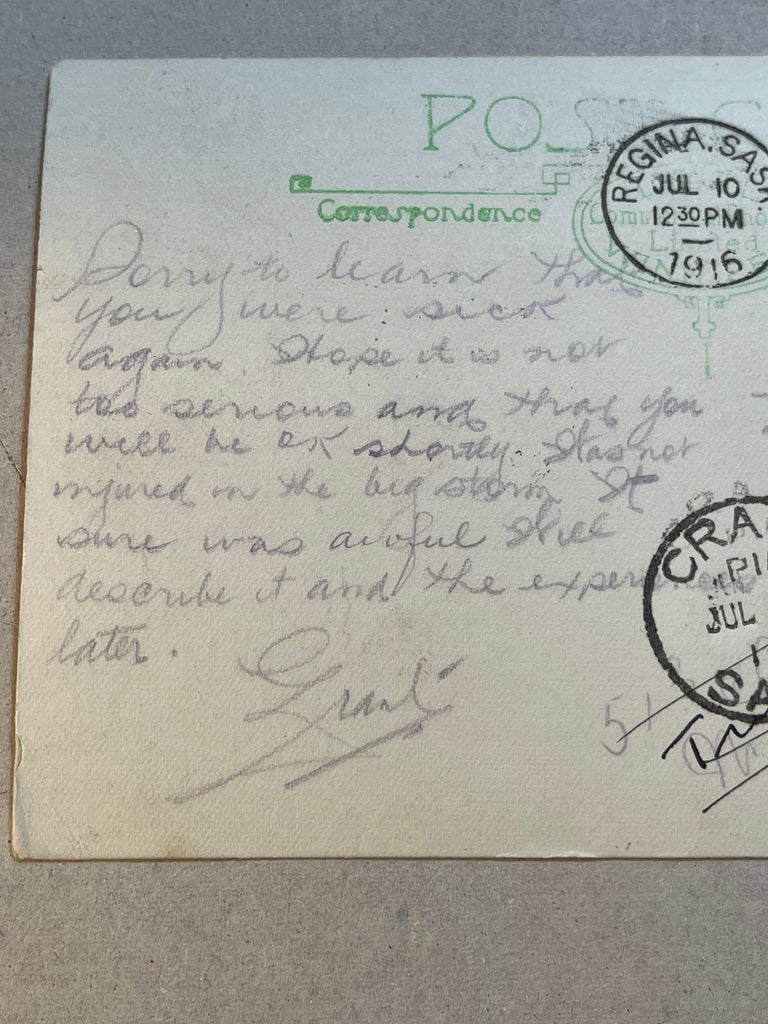 POST C
Correspondence
REGINA, SASK.
JUL 10
12 30 PM
1916
Limited
Sorry to learn that
you were sick
again. Hope it is not
too serious and that you
will be OK shortly. Was not
injured in the big storm It
sure was awful Will
describe it and the experience
later.
Grant
CRA
JUL
SA
51